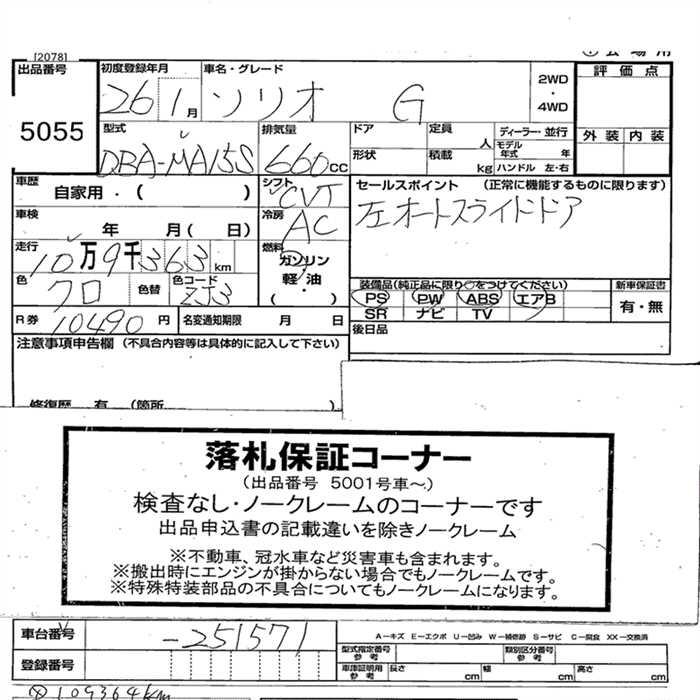 [2078]
出品番号
5055
初度登録年月
26 1月
車名・グレード
ソリオ G
2WD
・
4WD
評価点
外装 内装
型式
DBA-MA15S
排気量
660cc
ドア
形状
定員
人
積載
kg
ディーラー・並行
モデル年式 年
ハンドル 左・右
車歴
自家用・( )
シフト
CVT
セールスポイント (正常に機能するものに限ります)
左オートスライドドア
車検
年 月( 日)
冷房
AC
走行
10万9千363km
燃料
ガソリン
軽・油
( ・ )
色
クロ
色替
色コード
ZJ3
装備品(純正品に限り○をつけてください)
PS PW ABS エアB
SR ナビ TV
新車保証書
有・無
R券
10490円
名変通知期限 月 日
後日品
注意事項申告欄 (不具合内容等は具体的に記入して下さい)
修復歴 有 (箇所 )
落札保証コーナー
(出品番号 5001号車~)
検査なし・ノークレームのコーナーです
出品申込書の記載違いを除きノークレーム
※不動車、冠水車など災害車も含まれます。
※搬出時にエンジンが掛からない場合でもノークレームです。
※特殊特装部品の不具合についてもノークレームになります。
車台番号
-251571
A-キズ E-エクボ U-凹み W-補修跡 S-サビ C-腐食 XX-交換済
型式指定番号
参考
類別区分番号
参考
登録番号
車庫証明用
参考
長さ cm
幅 cm
高さ cm
109364km